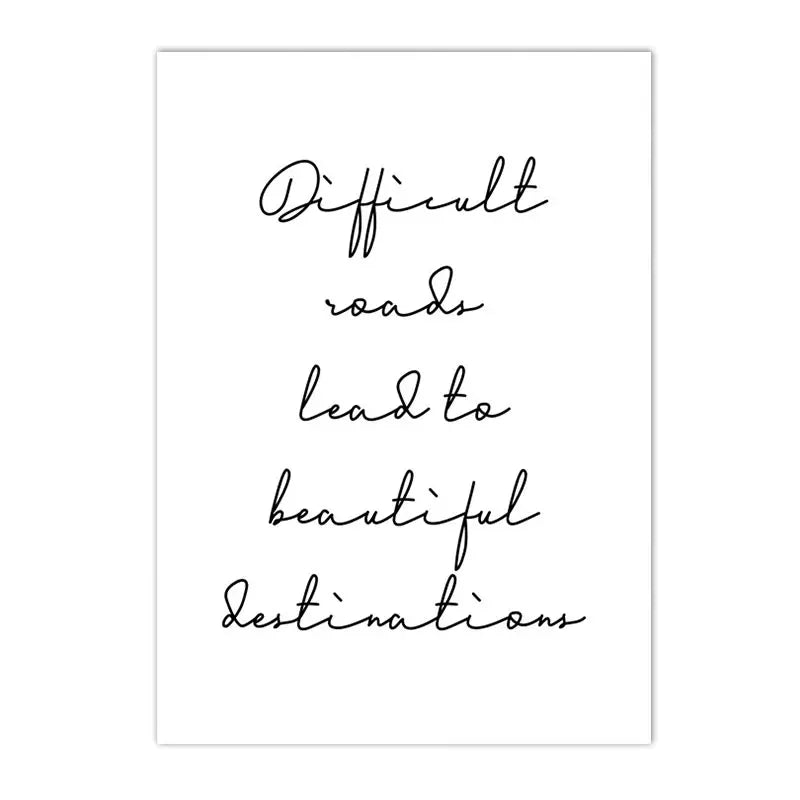 Difficult
roads
lead to
beautiful
destinations